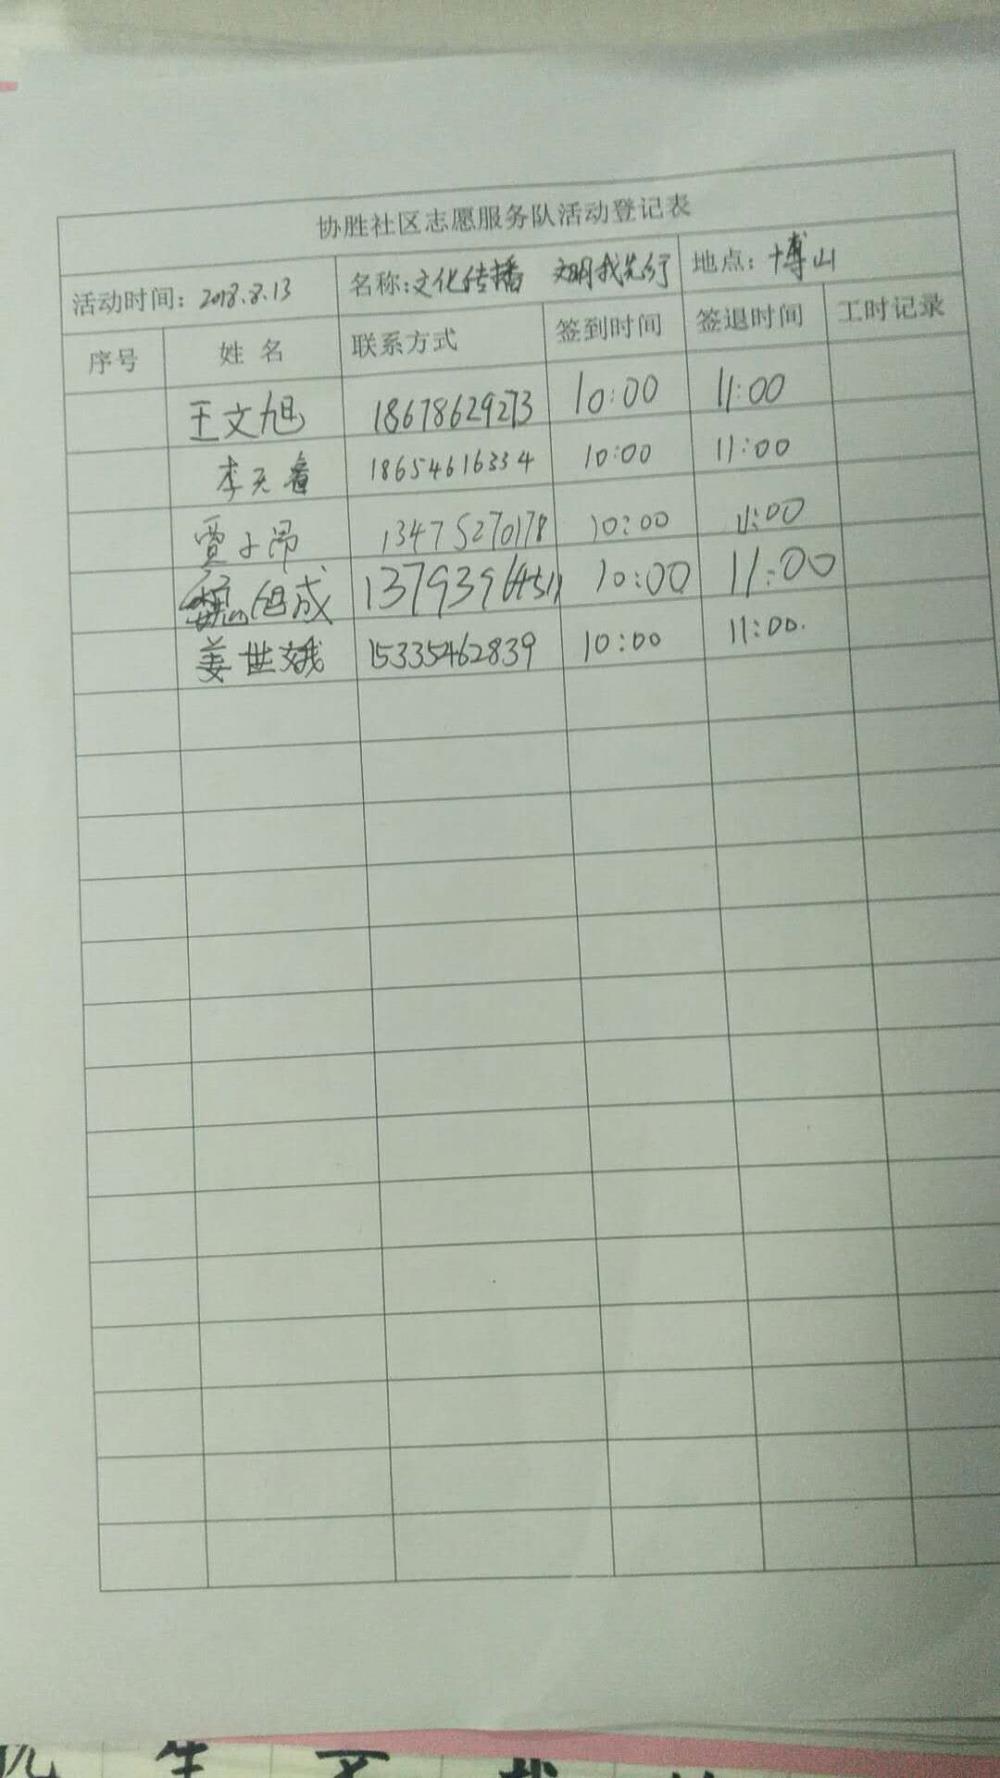 协胜社区志愿服务队活动登记表
活动时间：2018.8.13 名称：文化传播 文明我先行 地点：博山
序号 姓名 联系方式 签到时间 签退时间 工时记录
王文旭 18678629273 10:00 11:00
李天睿 18654616334 10:00 11:00
贾子昂 13475270178 10:00 11:00
成 10:00 11:00
姜世娥 15335462839 10:00 11:00.